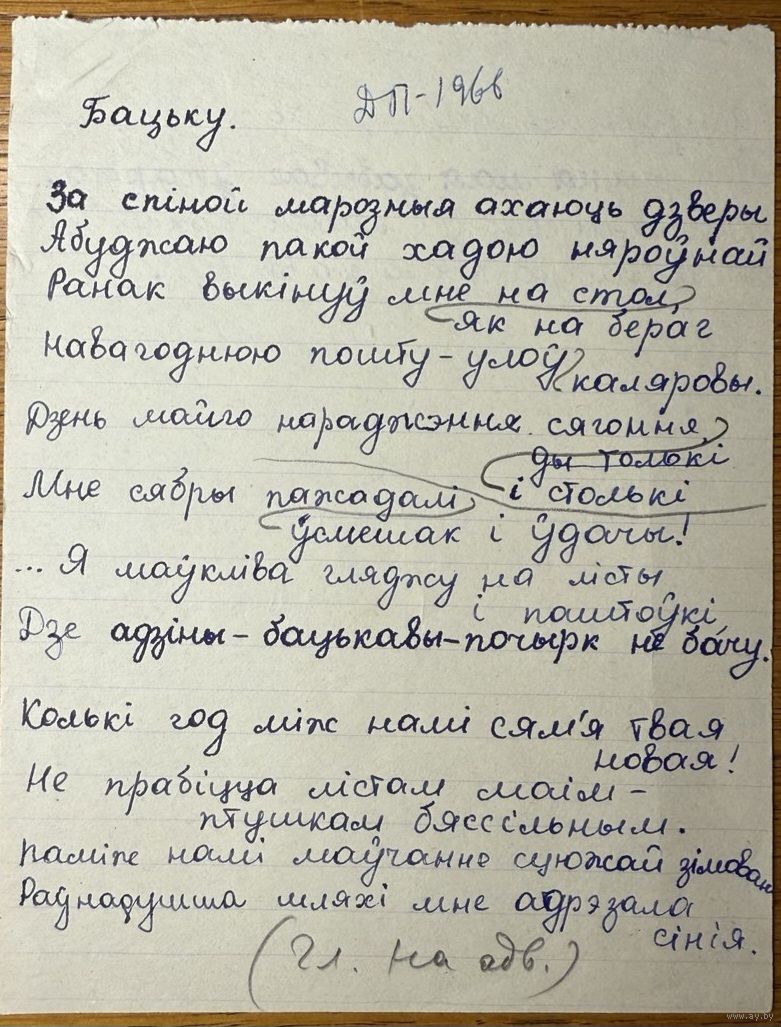 ДП-1966
Бацьку.
За спіной марозныя ахаюць дзверы
Абуджаю пакой хадою няроўнай
Ранак выкінуў мне на стол,
як на бераг
Навагоднюю пошту - улоў
каляровы.
Дзень майго нараджэння сягоння,
ды толькі
Мне сябры пажадалі і столькі
ўсмешак і ўдачы!
... Я маўкліва гляджу на лісты
і паштоўкі,
Дзе адзіны - бацькавы - почырк не бачу.
Колькі год між намі сям'я твая
новая!
Не прабіцца лістам маім -
птушкам бяссільным.
Паміж намі маўчанне сцюжай зімовай
Раўнадушша шляхі мне адрэзала
сінія.
(Гл. на адв.)
www.ay.by